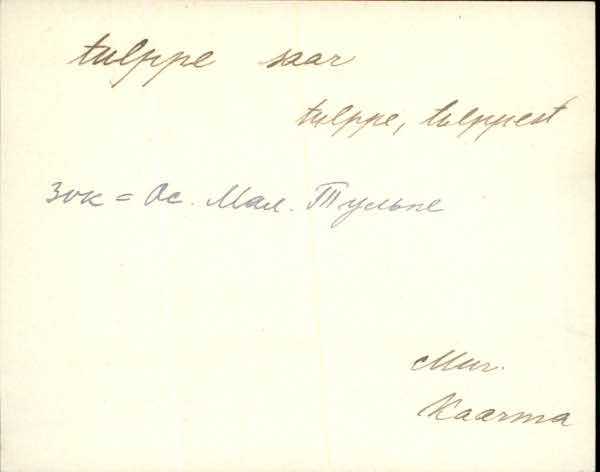 tulppe saar
tulppe, tulppest
Зок = Ос. Мал. Тульпе
Mur.
Kaarma